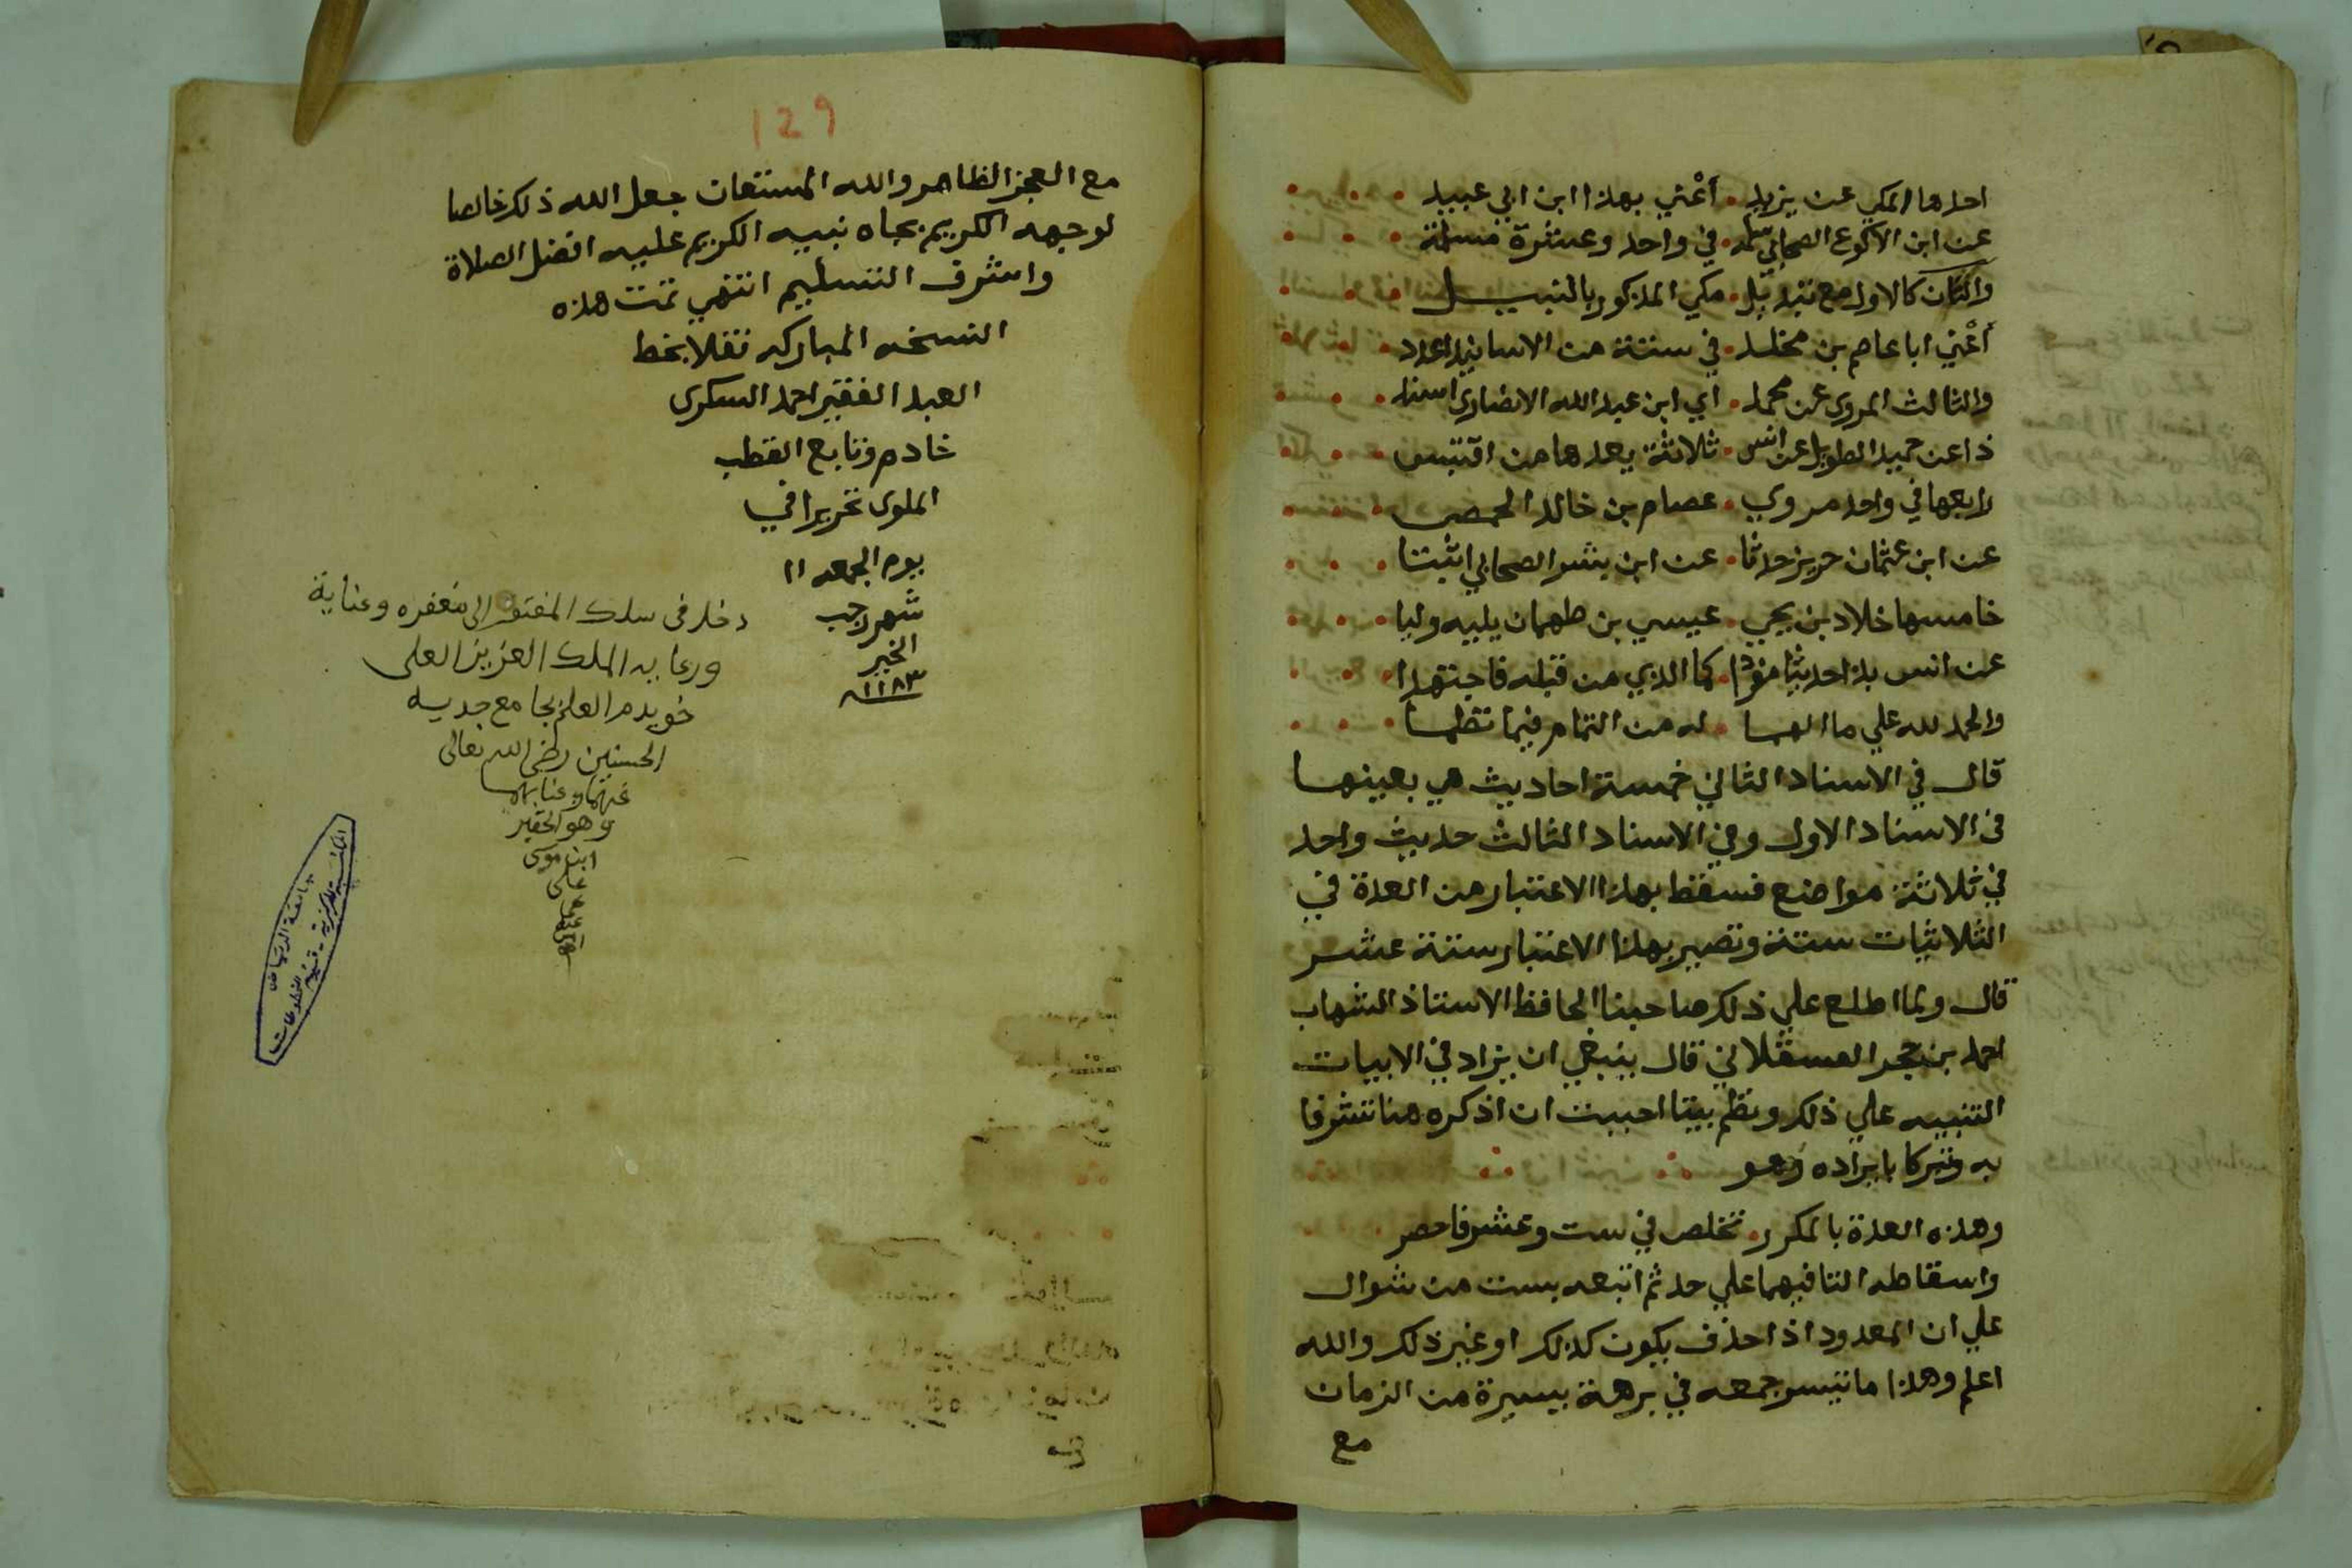 احدها المكي عن يزيد . أعْني بهذا ابن ابي عبيد
عن ابن الاكوع الصحابي سلمه . في واحد وعشرة مسلمة
والثان كالاول مع تبديل . مكي المذكور بالنبيل
أعْني ابا عاصم بن مخلد . في ستة من الاسانيد اعدد
والثالث المروي عن محمد . اي ابن عبد الله الانصاري اسند
ذا عن حميد الطويل عن انس . ثلاثة يعدها من اقتبس
رابعها في واحد مروي . عصام بن خالد الحمصي
عن ابن عثمان حريز حدثا . عن ابن بشر الصحابي اثبتا
خامسها خلاد بن يحيي . عيسي بن طهمان يليه وليا
عن انس بذا حديثا مفردا . كما الذي من قبله فاجتهدا
والحمد لله علي ما الهما . له من التمام فيما نظما
قال في الاسناد الثاني خمسة احاديث هي بعينها
في الاسناد الاول وفي الاسناد الثالث حديث واحد
في ثلاثة مواضع فسقط بهذا الاعتبار من العدة في
الثلاثيات ستة وتصير بهذا الاعتبار ستة عشر
قال ولما اطلع علي ذلك صاحبنا الحافظ الاستاذ الشهاب
احمد بن حجر العسقلاني قال ينبغي ان يزاد في الابيات
التنبيه علي ذلك ونظم بيتا احببت ان اذكره هنا تشرفا
به وتبركا بايراده وهو
وهذه العدة بالمكرر . تخلص في ست وعشر فاحصر
واسقاطه التا فيهما علي حد ثم اتبعه بست من شوال
علي ان المعدود اذا حذف يكون كذلك او غير ذلك والله
اعلم وهذا ما تيسر جمعه في برهة يسيرة من الزمان
مع
129
مع العجز الظاهر والله المستعان جعل الله ذلك خالصا
لوجهه الكريم بجاه نبيه الكريم عليه افضل الصلاة
واشرف التسليم انتهي تمت هذه
النسخه المباركه نقلا بخط
العبد الفقير احمد السكرى
خادم وتابع القطب
الملوى تحريرا في
يوم الجمعه ١١
شهر رجب
الخير
١١٨٣
دخل في سلك المفتقر الى مغفره وعناية
ورعايه الملك العزيز العلى
خويدم العلم بجامع جديه
الحسنين رضى الله تعالى
عنهما
وهو الحقير
ابن موسى
على
المكتبة المركزية - قسم المخطوطات
جامعة الرياض